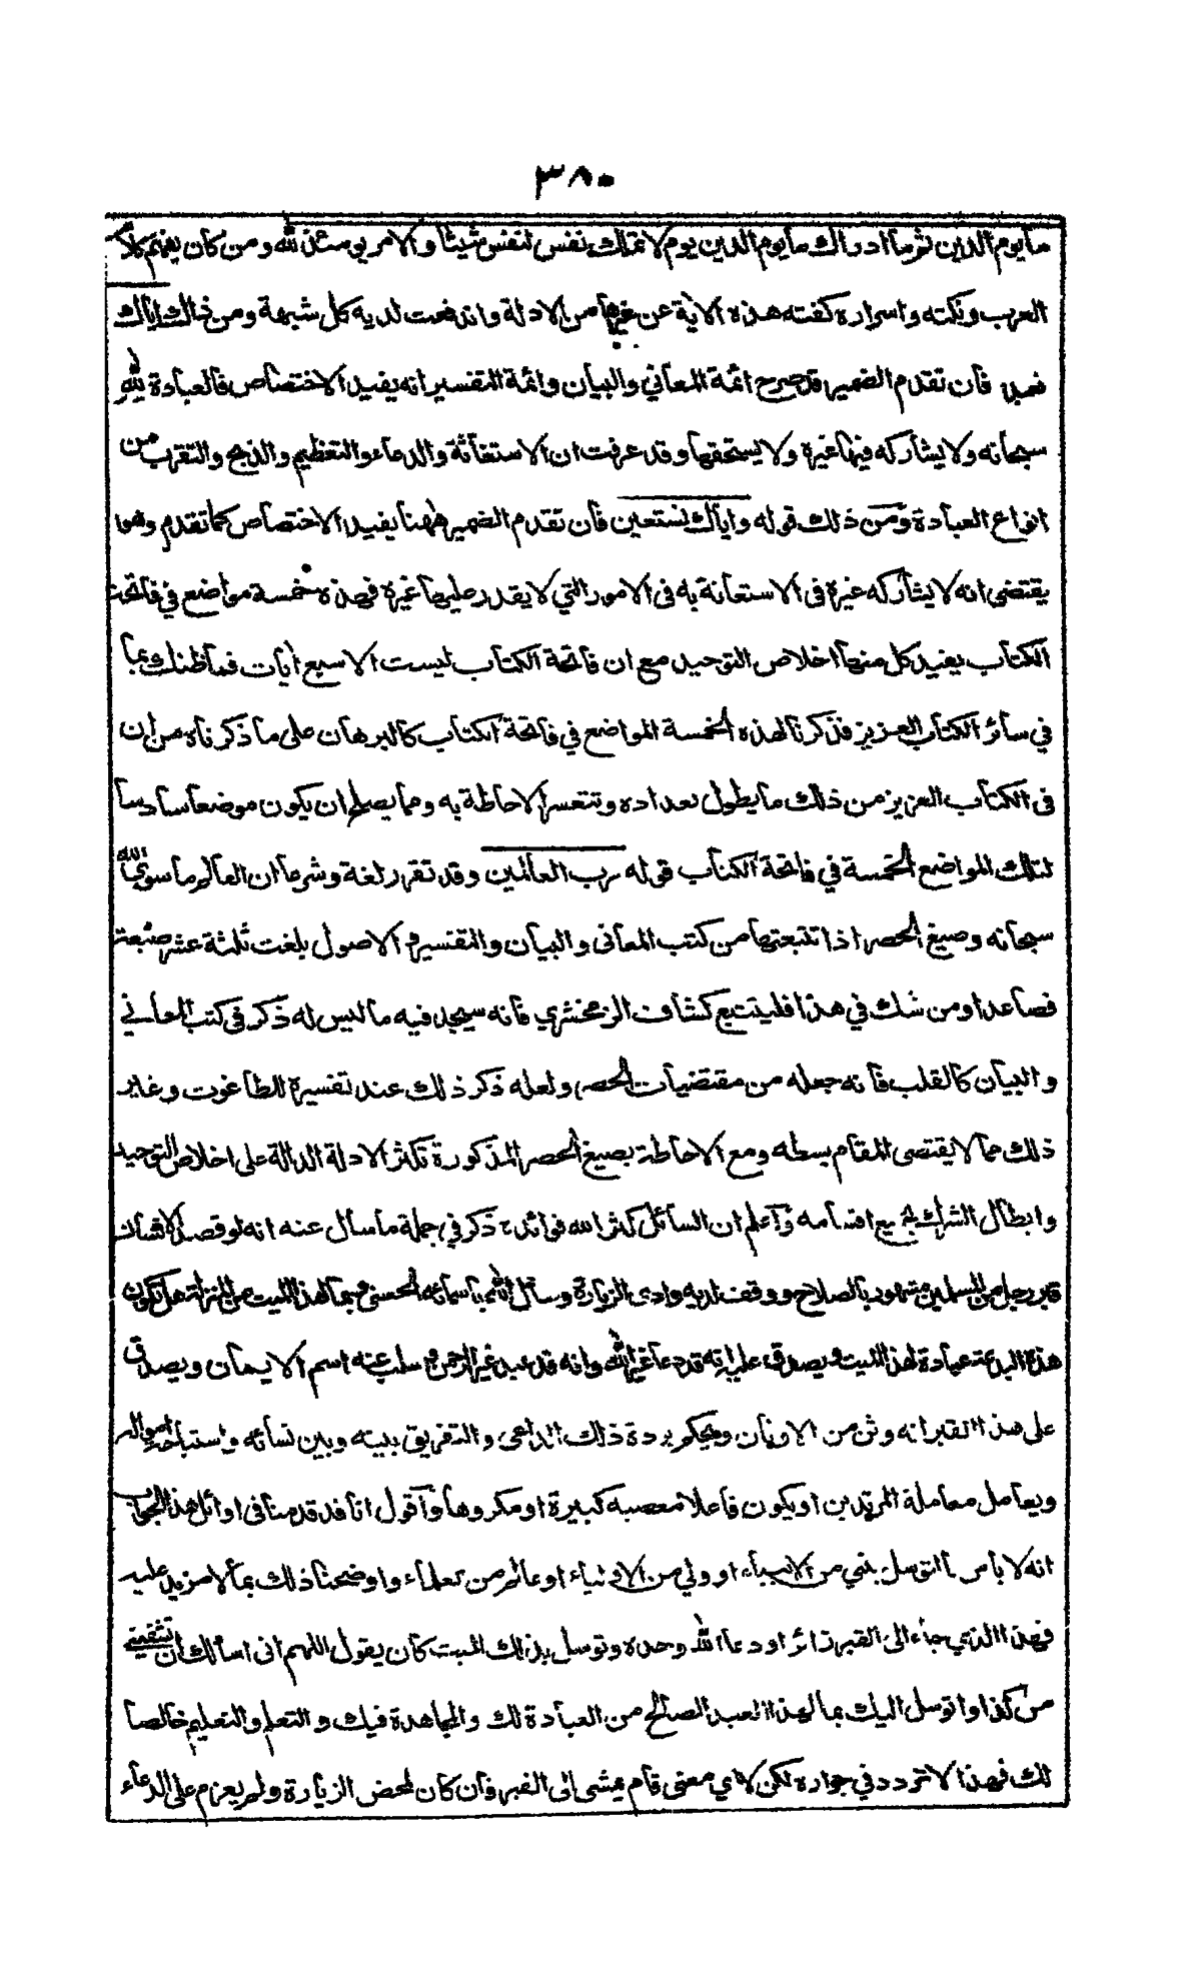 ٣٨٠
ما يوم الدين ثم ما ادراك ما يوم الدين يوم لا تملك نفس لنفس شيئا والامر يومئذ لله ومن كان يفهم كلام
العرب ونكته واسراره كفته هذه الاية عن غيرها من الادلة واندفعت لديه كل شبهة ومن ذلك اياك
نعبد فان تقدم الضمير قد صرح ائمة المعاني والبيان وائمة التفسير انه يفيد الاختصاص فالعبادة لله
سبحانه ولا يشاركه فيها غيره ولا يستحقها وقد عرفت ان الاستغاثة والدعاء والتعظيم والذبح والتقرب من
انواع العبادة ومن ذلك قوله واياك نستعين فان تقدم الضمير ههنا يفيد الاختصاص كما تقدم وهو
يقتضى انه لا يشاركه غيره فى الاستعانة به فى الامور التي لا يقدر عليها غيره فهذه خمسة مواضع في فاتحة
الكتاب يفيد كل منها اخلاص التوحيد مع ان فاتحة الكتاب ليست الا سبع ايات فما ظنك بما
في سائر الكتاب العزيز فذكرنا لهذه الخمسة المواضع في فاتحة الكتاب كالبرهان على ما ذكرناه من ان
فى الكتاب العزيز من ذلك ما يطول تعداده وتتعسر الاحاطة به ومما يصلح ان يكون موضعا سادسا
لتلك المواضع الخمسة في فاتحة الكتاب قوله رب العالمين وقد تقرر لغة وشرعا ان العالم ما سوى الله
سبحانه وصيغ الحصر اذا تتبعتها من كتب المعانى والبيان والتفسير والاصول بلغت ثلثة عشر صيغة
فصاعدا ومن شك في هذا فليتتبع كشاف الزمخشري فانه سيجد فيه ما ليس له ذكر فى كتب المعاني
والبيان كالقلب فانه جعله من مقتضيات الحصر ولعله ذكر ذلك عند تفسيره الطاغوت وغاير
ذلك مما لا يقتضى المقام بسطه ومع الاحاطة بصيغ الحصر المذكورة تكثر الادلة الدالة على اخلاص التوحيد
وابطال الشرك بجميع اقسامه واعلم ان السائل كثر الله فوائده ذكر في جملة ما سأل عنه انه لو قصد الانسان
قبر رجل من المسلمين مشهور بالصلاح ووقف لديه وادى الزيارة وسأل الله باسمائه الحسنى وبما لهذا الميت من المنزلة هل تكون
هذه البدعة عبادة لهذا الميت ويصدق عليه انه قد دعا غير الله وانه قد عبد غير الرحمن وسلب عنه اسم الايمان ويصدق
على هذا القبر انه وثن من الاوثان ويحكم بردة ذلك الداعى والتفريق بينه وبين نسائه واستباحة امواله
ويعامل معاملة المرتدين او يكون فاعلا معصية كبيرة او مكروها واقول انا قد قدمنا فى اوائل هذا الجواب
انه لا بأس بالتوسل بنبي من الانبياء او ولي من الاولياء او عالم من العلماء واوضحنا ذلك بما لا مزيد عليه
فهذا الذي جاء الى القبر زائرا ودعا الله وحده وتوسل بذلك الميت كان يقول اللهم انى اسألك ان تشفيني
من كذا واتوسل اليك بما لهذا العبد الصالح من العبادة لك والمجاهدة فيك والتعلم والتعليم خالصا
لك فهذا لا تردد في جوازه لكن لاي معنى قام يمشى الى القبر فان كان لمحض الزيارة ولم يعزم على الدعاء